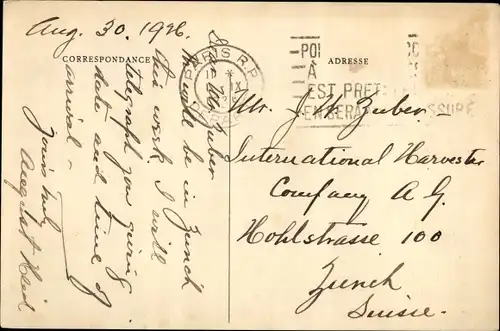 Aug. 30. 1926.
CORRESPONDANCE
ADRESSE
PARIS R.P.
À
EST PRET
EN SERA
ASSURÉ
Dear Mr Zuber
We will be in Zurich
this week. I will
telegraph you giving
date and time of
arrival -
Yours Truly
August
Mr. J. H. Zuber -
International Harvester
Company A. G.
Hohlstrasse 100
Zurich
Suisse.